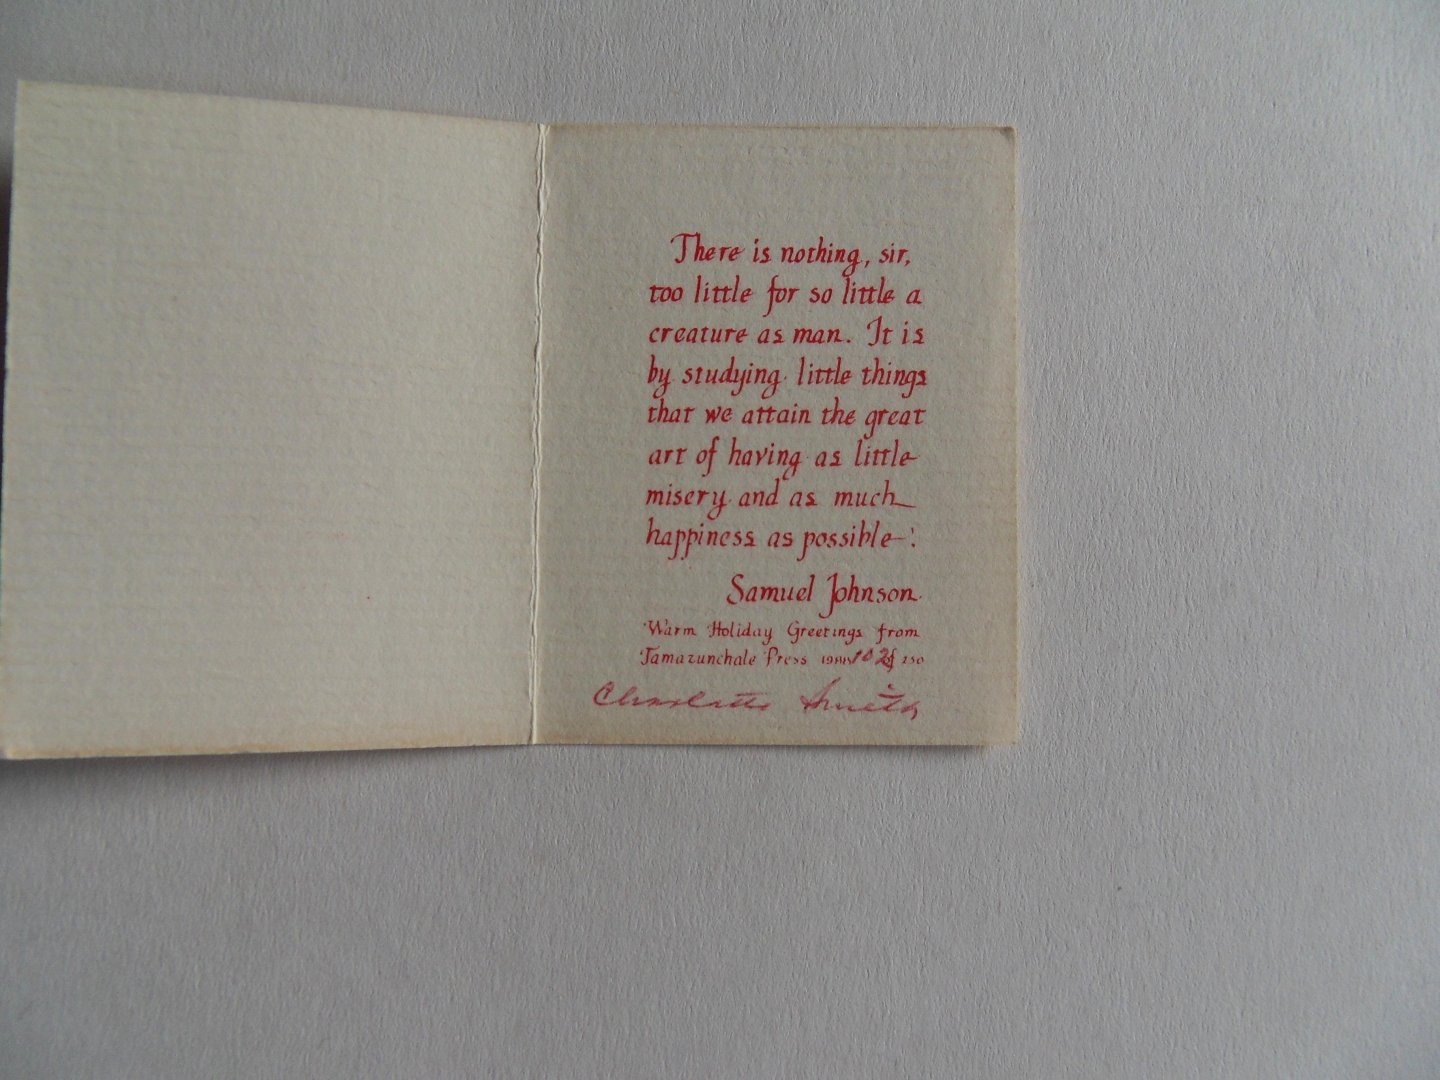 There is nothing, sir,
too little for so little a
creature as man. It is
by studying little things
that we attain the great
art of having as little
misery and as much
happiness as possible.
Samuel Johnson.
Warm Holiday Greetings from
Tamazunchale Press 1988 102 of 250
Charlotte Smith